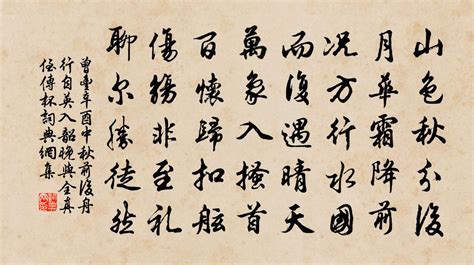 山色秋分後
月華霜降前
況方行水國
而復遇晴天
萬象入搔首
百懷歸扣舷
傷觴非至礼
聊尔勝徒然
曾豐辛酉中秋前後舟
行自英入韶晚與全真
侄傳杯詞典網集